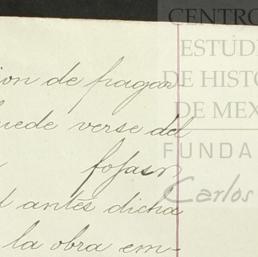 CENTRO
ESTUD
DE HISTO
DE MEX
FUNDA
Carlos
ion de pagar
uede verse del
fojas
antes dicha
la obra em-